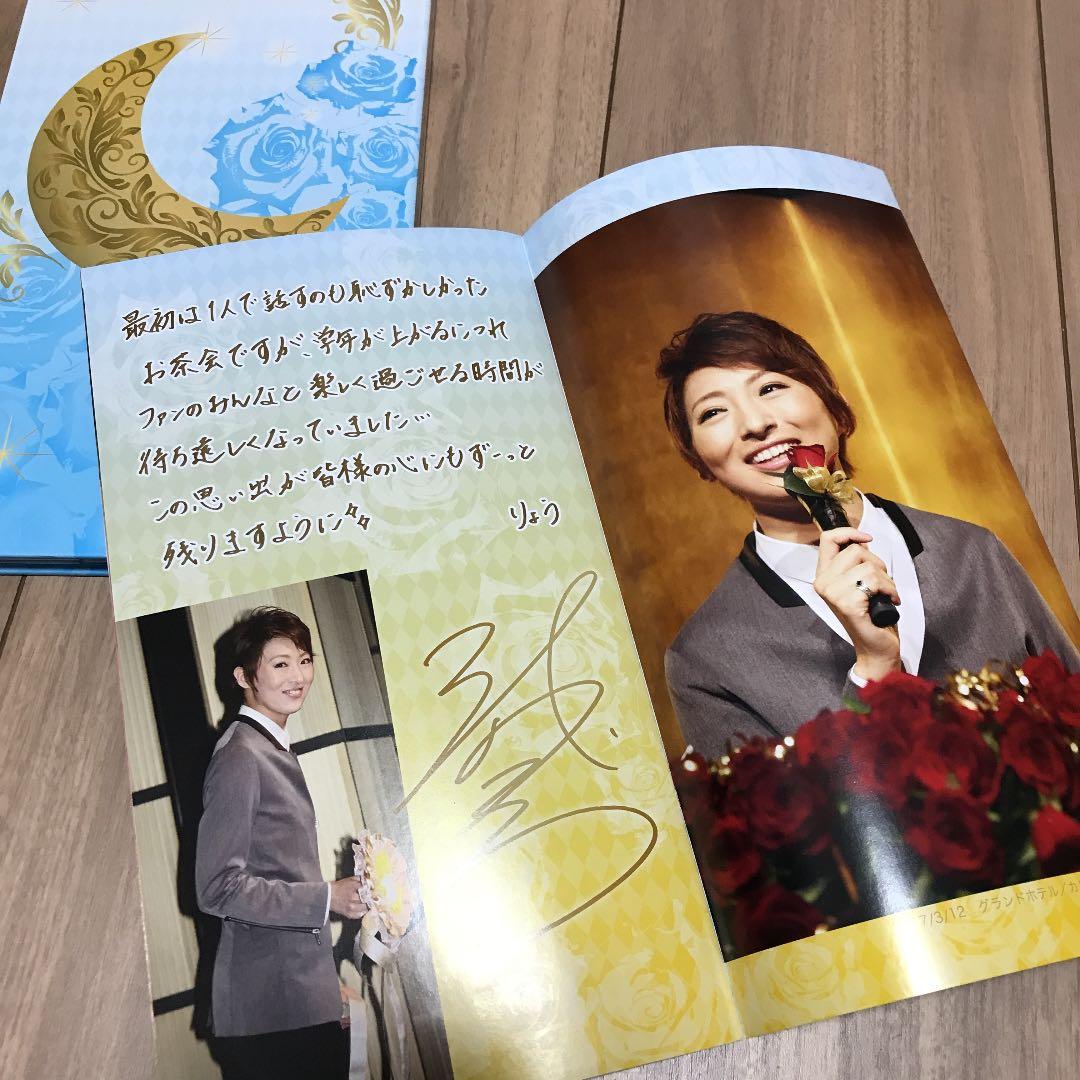 最初は1人で話すのも恥ずかしかった
お茶会ですが、学年が上がるにつれ
ファンのみんなと楽しく過ごせる時間が
待ち遠しくなっていました…
この思い出が皆様の心にもずーっと
残りますように
りょう
7/3/12 グランドホテル/カ